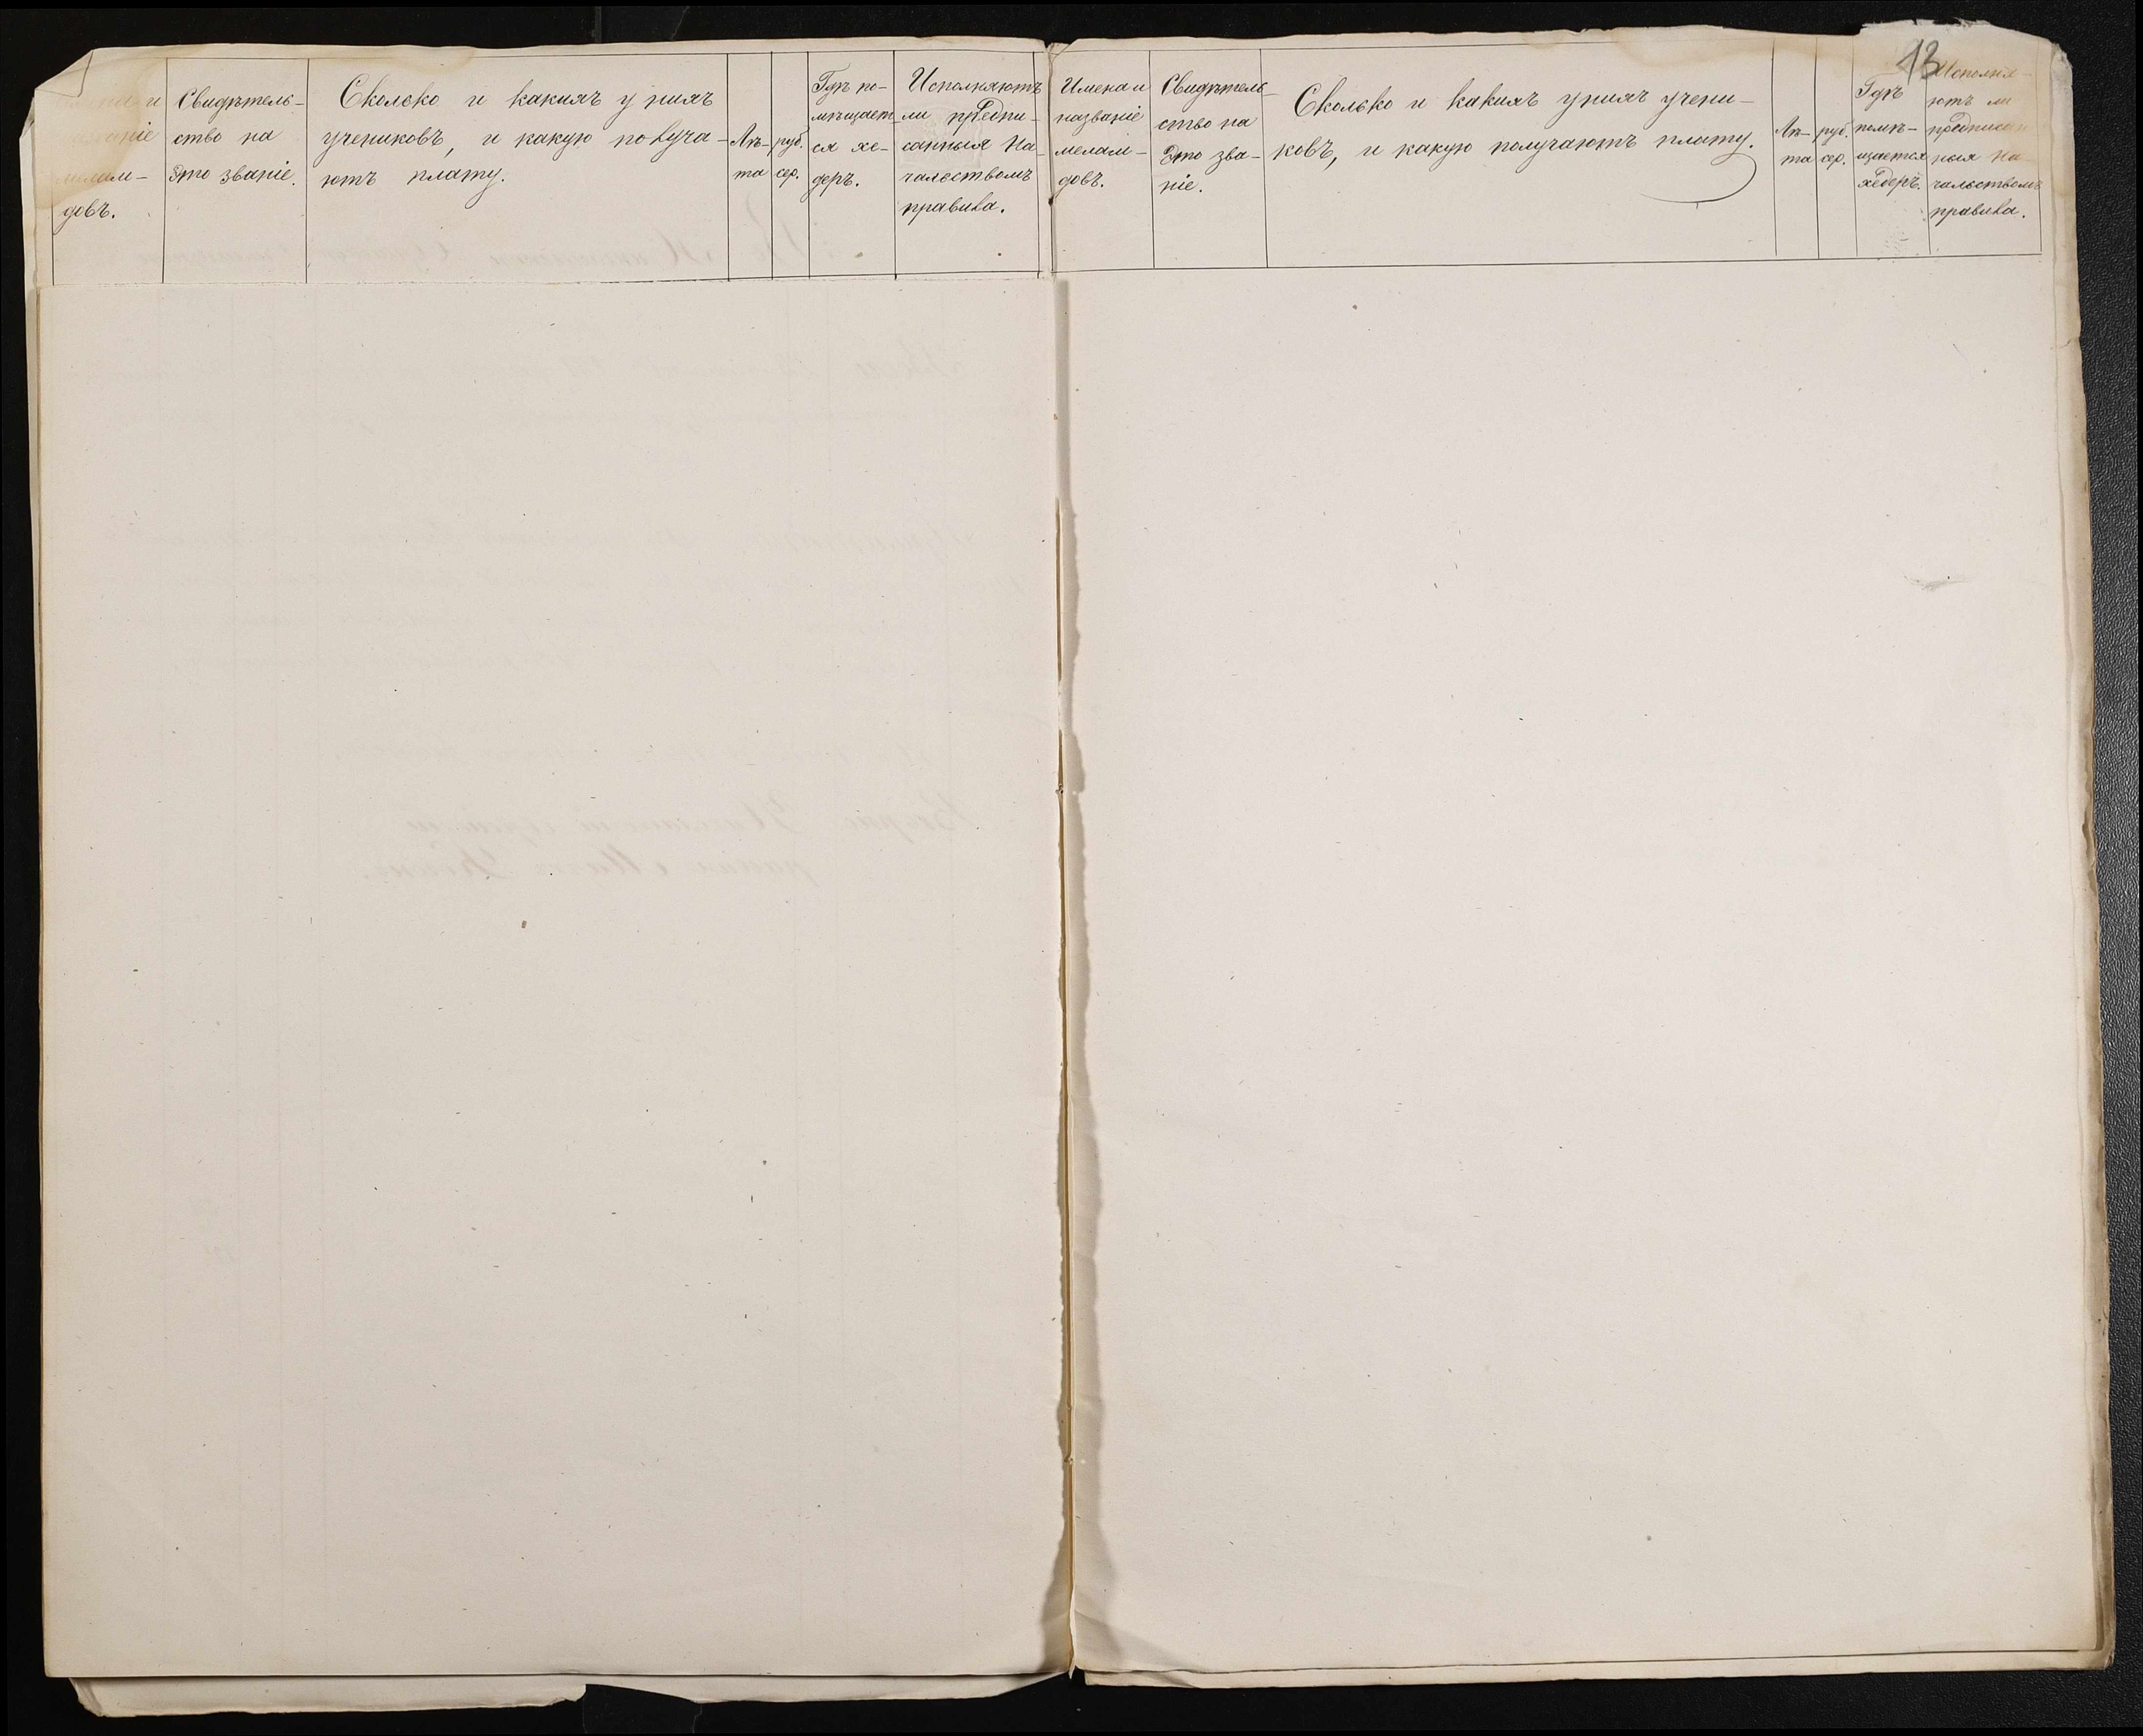 и
Свидѣтель-
ство на
это званіе.
мелам-
довъ.
Сколько и какихъ у нихъ
учениковъ, и какую получа-
ютъ плату.
Лѣ-
та
руб.
сер.
Гдѣ по-
мѣщает-
ся хе-
деръ.
Исполняютъ
ли предпи-
санныя на-
чальствомъ
правила.
13
Имена и
названіе
мелам-
довъ.
Свидѣтель-
ство на
это зва-
ніе.
Сколько и какихъ у нихъ учени-
ковъ, и какую получаютъ плату.
Лѣ-
та
руб.
сер.
Гдѣ
помѣ-
щается
хедеръ.
Исполня-
ютъ ли
предписан
ныя на-
чальствомъ
правила.